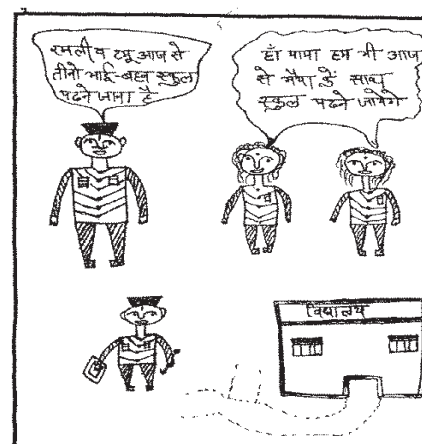 रमली व टमू आज से
तीनो भाई-बहन स्कुल
पढने जाना है
हाँ पापा हम भी आज
से भैया के साथ
स्कुल पढने जायेगे
विद्यालय